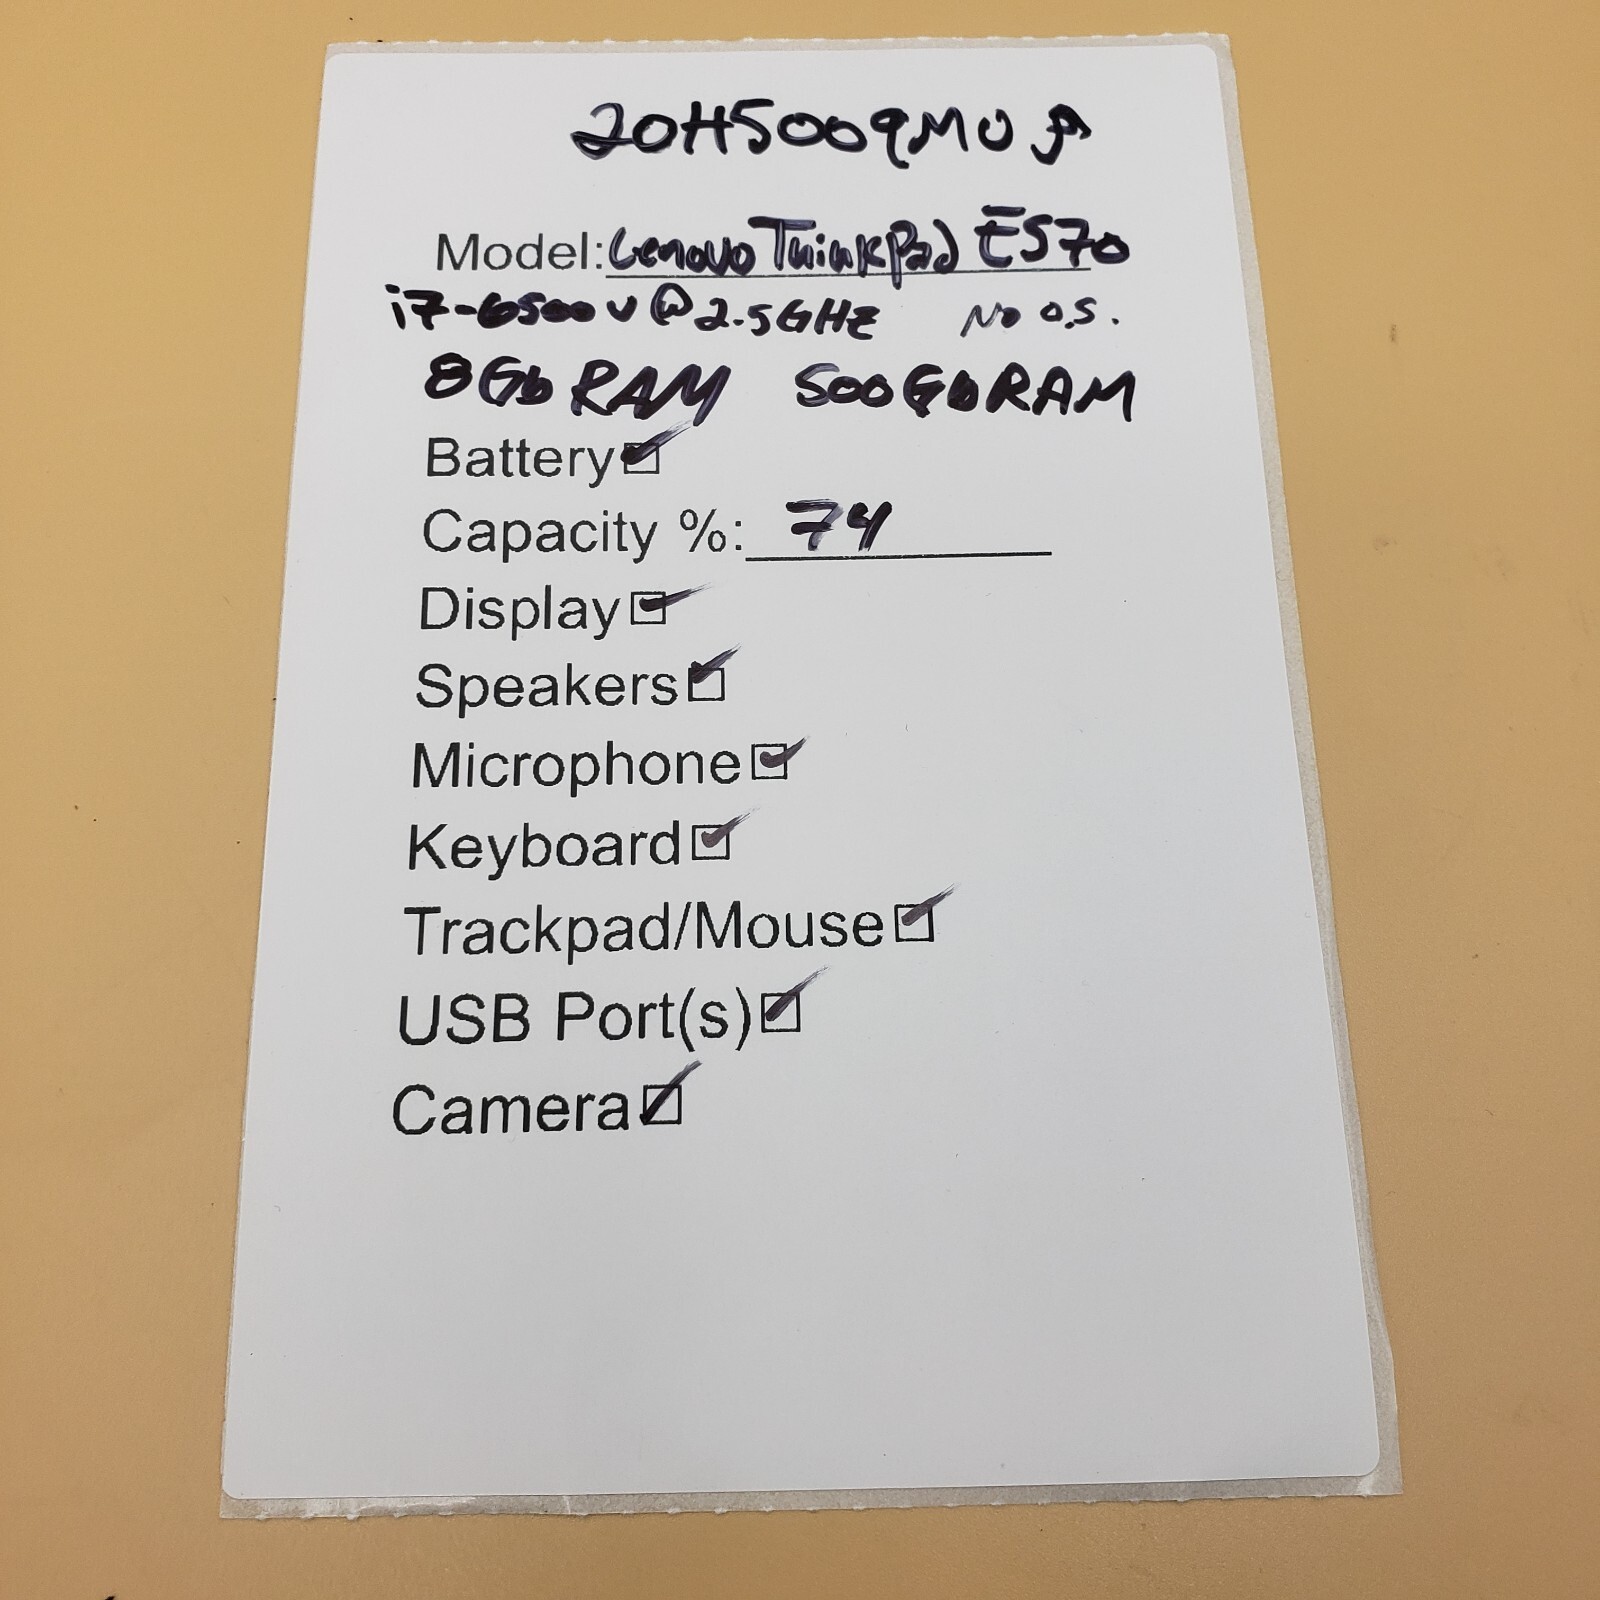 20H5009MU
Model: Lenovo ThinkPad E570
i7-6500U @ 2.5GHz No O.S.
8Gb RAM 500GbRAM
Battery
Capacity %: 74
Display
Speakers
Microphone
Keyboard
Trackpad/Mouse
USB Port(s)
Camera